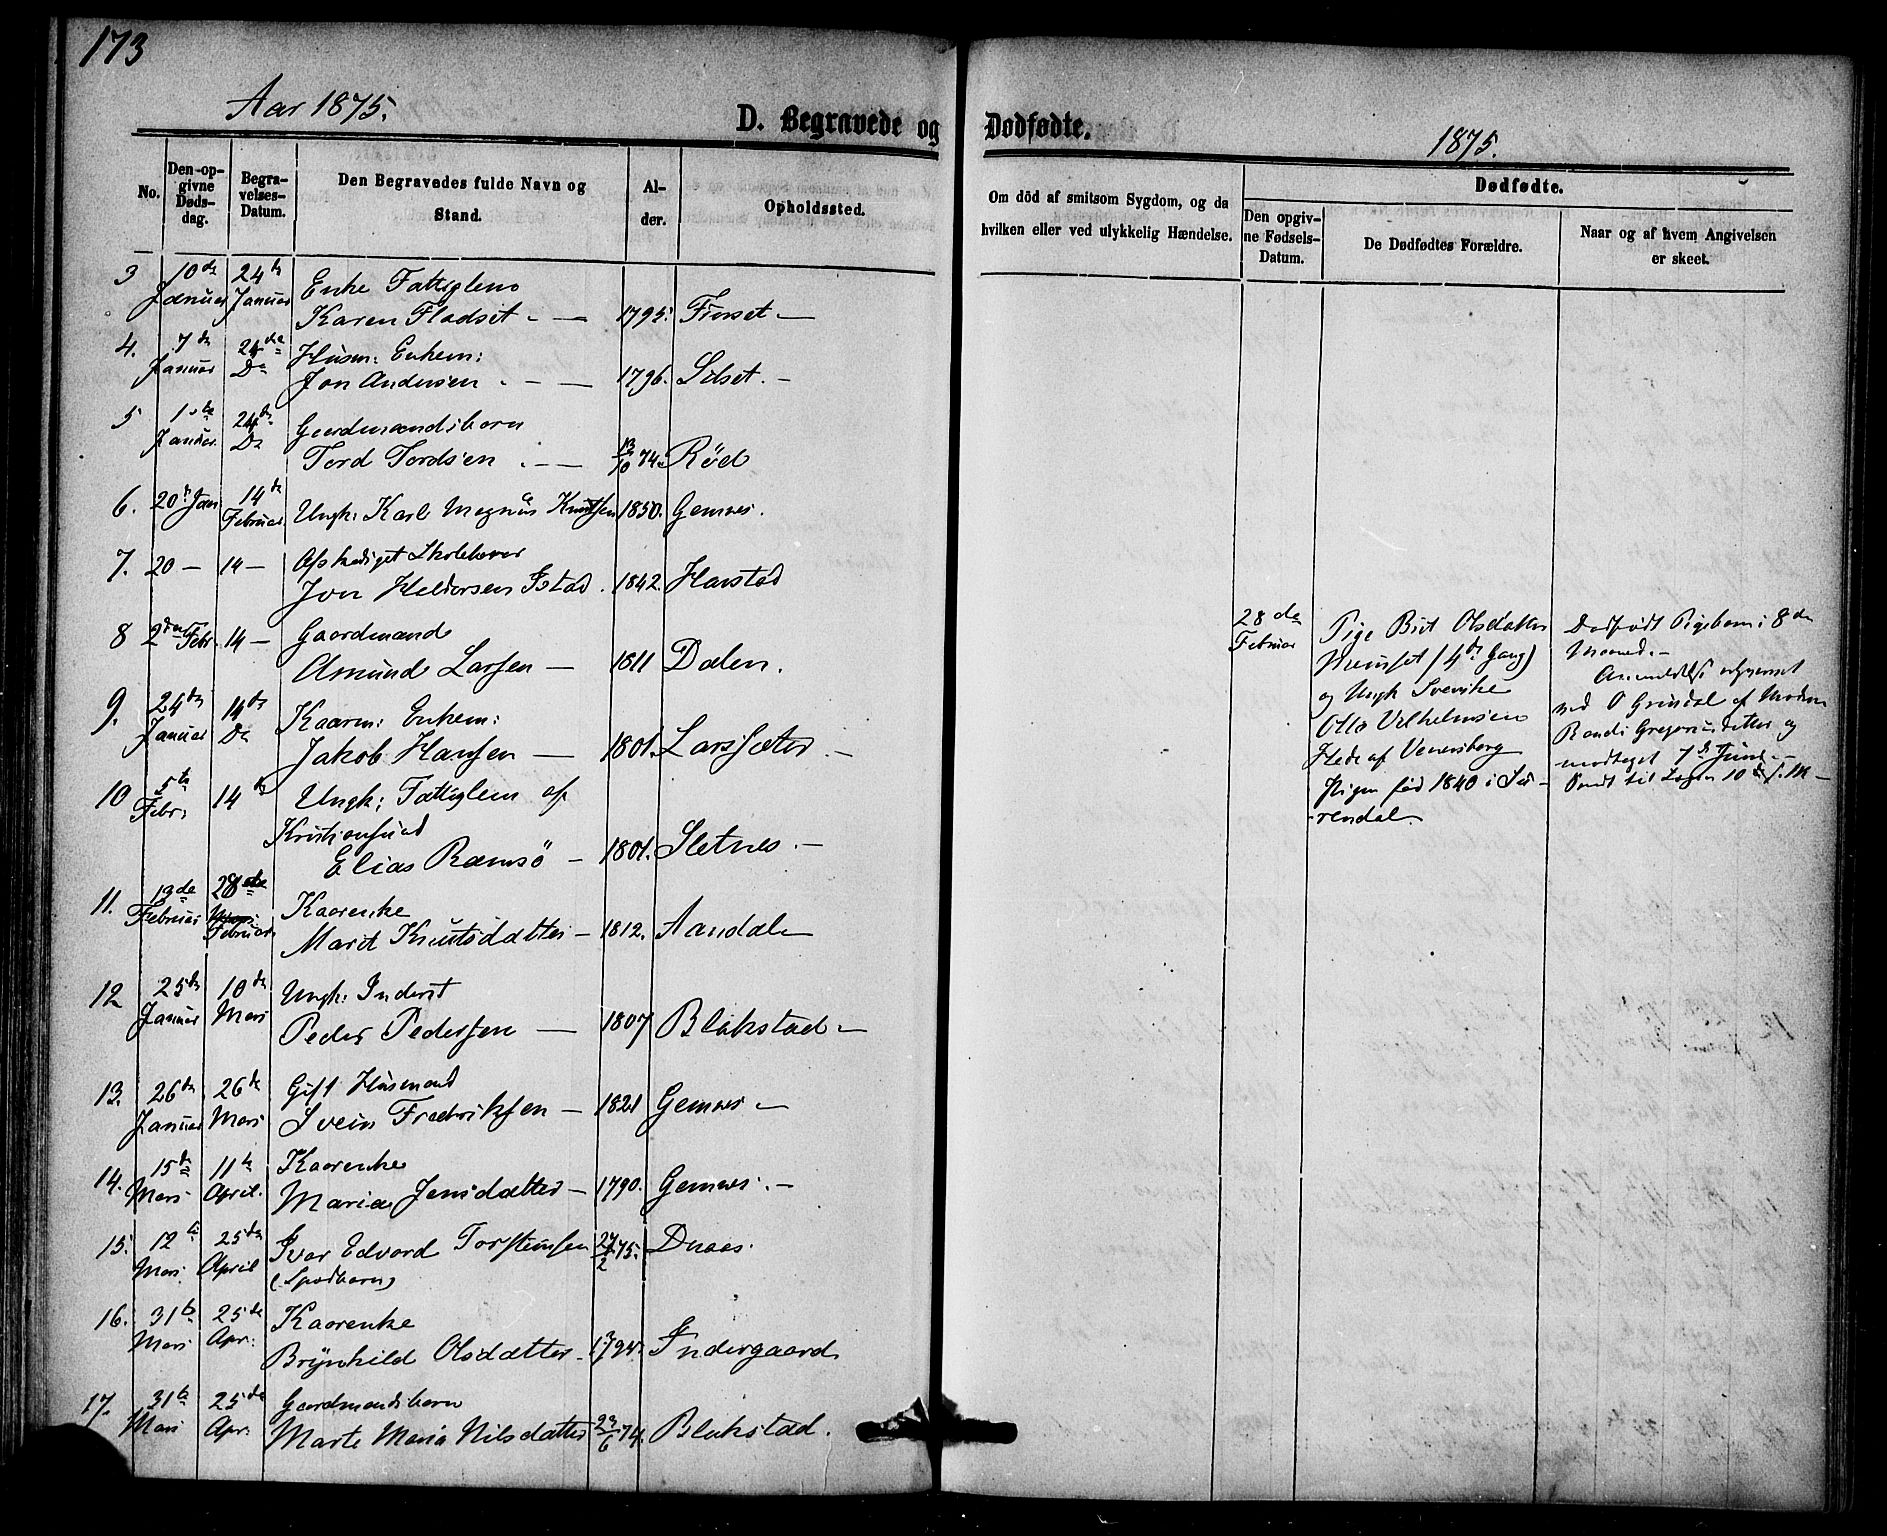 173
Aar 1875.
D. Begravede og Dødfødte.
1875.
No.
Den opgivne Dødsdag.
Begravelses-Datum.
Den Begravedes fulde Navn og Stand.
Alder.
Opholdssted.
Om död af smitsom Sygdom, og da hvilken eller ved ulykkelig Hændelse.
Dødfødte.
Den opgivne Fødsels-Datum.
De Dødfødtes Forældre.
Naar og af hvem Angivelsen er skeet.
3 10de Januar 24de Januar Enke Fattiglem
Karen Fladset - 1795. Furset
4. 7de Januar 24de Do Husm: Enkem:
Jon Andersen - 1796. Silset.
5 Januar 24de Do Gaardmandsbarn
Tord Tordsen - 13/10 74. Rød
6. 20de Jan 14de Februar Ungk: Karl Magnus Knutsen 1850. Gemnes.
7. 20 - 14 - Afskediget Skolelærer
Jon Haldorsen Istad. 1842. Harstad
8 2den Febr. 14 - Gaardmand
Amund Larsen - 1811 Dalen.
9. 24de Januar 14de Do Kaarm: Enkem:
Jakob Hansen - 1801. Larssæter
10 5te Febr. 14de Ungk: Fattiglem af
Kristiansund
Elias Ramsö - 1801. Sletnes
11. 13de Februar 28de Februar Kaarenke
Marit Knutsdatter - 1812. Aandal
12 25de Januar 10de Mars Ungk: Inderst
Peder Pedersen - 1807 Blakstad
13. 26de Januar 26de Mars Gift Husmand
Svein Fredriksen - 1821 Gemnes
14. 15de Mars 11te April. Kaarenke
Maria Jensdatter - 1790. Gemnes.
15. 12te Mars. 25de April Ivar Edvard Torsteinsen 24/2 75. Dnaes.
(Spædbarn)
16. 31te Mars 25de Apr: Kaarenke
Brynhild Olsdatter Indergaard
17. 31te Mars 25de Apr: Gaardmandsbarn
Marte Maria Nilsdatter 23/6 74. Blakstad.
28de Februar
Pige Brit Olsdatter
(4de Gang)
og Ungk Svenske
Otto Vilhelmsen
Hede af Venersborg
Pigen fød 1840 i Su-
rendal.
Dødfødt Pigebarn i 8de
Maaned.
Anmeldelse
ved O Grindal af Moderen
Randi Gregersdatter og
modtaget 7de Juni
Sendt til Lagen 10de s. M